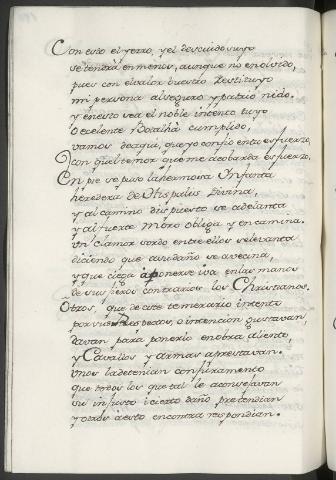 Con esto el yerro, y el descuido suyo
se tendrá en menos, aunque no en olvido,
pues con el valor vuestro Restituyo
mi persona al seguro y patrio nido.
y en esto vea el noble intento tuyo
o excelente cumplido,
vamos de aqui, que yo confio en tu esfuerzo,
con qual temor que me acobarda es fuerzo.
En pie se puso la hermosa Infanta
heredera de Hispalis Divina,
y al camino dispuesto se adelanta
y al fuerte Moro obliga y encamina.
Un clamor sordo entre ellos se levanta
diciendo que su daño se avecina,
y que ciega a ponerse iva en las manos
de sus fieros contrarios los Christianos.
Otros, que de este temerario intento
por sus Respetos, o intencion gustavan,
davan para ponerlo en obra aliento,
y Cavallos y armas aprestavan.
Unos la detenian con juramento
que todos los que tal le aconsejavan
su injusto i cierto daño pretendian
y otros a esto en contra respondian.